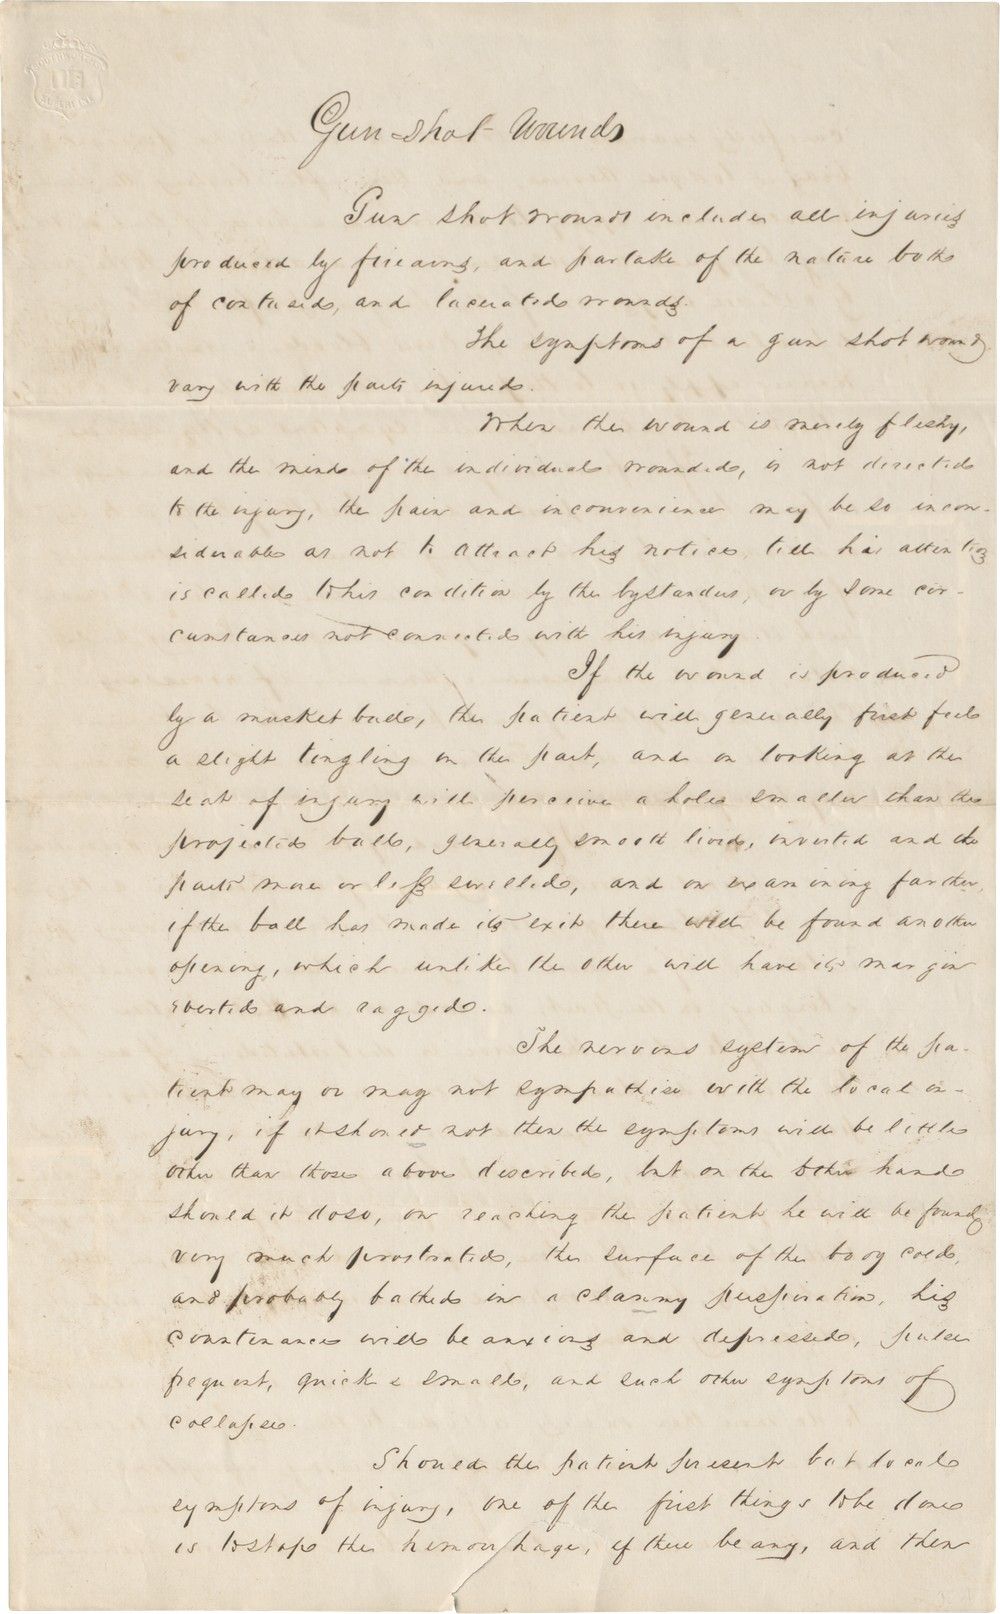 Gun-shot Wounds
Gun shot wounds includes all injuries
produced by firearms, and partake of the nature both
of contused, and lacerated wounds.
The symptoms of a gun shot wound
vary with the parts injured.
When the wound is merely fleshy,
and the mind of the individual wounded, is not directed
to the injury, the pain and inconvenience may be so incon-
siderable as not to attract his notice, till his attention
is called to his condition by the bystanders, or by some cir-
cumstances not connected with his injury.
If the wound is produced
by a musket ball, the patient will generally first feel
a slight tingling in the part, and on looking at the
seat of injury will perceive a hole smaller than the
projected ball, generally smooth lived, inverted and the
parts more or less swelled, and on examining farther,
if the ball has made its exit there will be found another
opening, which unlike the other will have its margin
everted and ragged.
The nervous system of the pa-
tient may or may not sympathise with the local in-
jury, if it should not then the symptoms will be little
other than those above described, but on the other hand
should it do so, on reaching the patient he will be found
very much prostrated, the surface of the body cold,
and probably bathed in a clammy perspiration, his
countinance will be anxious and depressed, pulse
frequent, quick & small, and such other symptoms of
collapse.
Should the patient present but local
symptoms of injury, one of the first things to be done
is to stop the hemorrhage, if there be any, and then